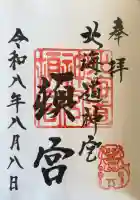 奉拝
北海道神宮
頓宮
令和八年八月八日